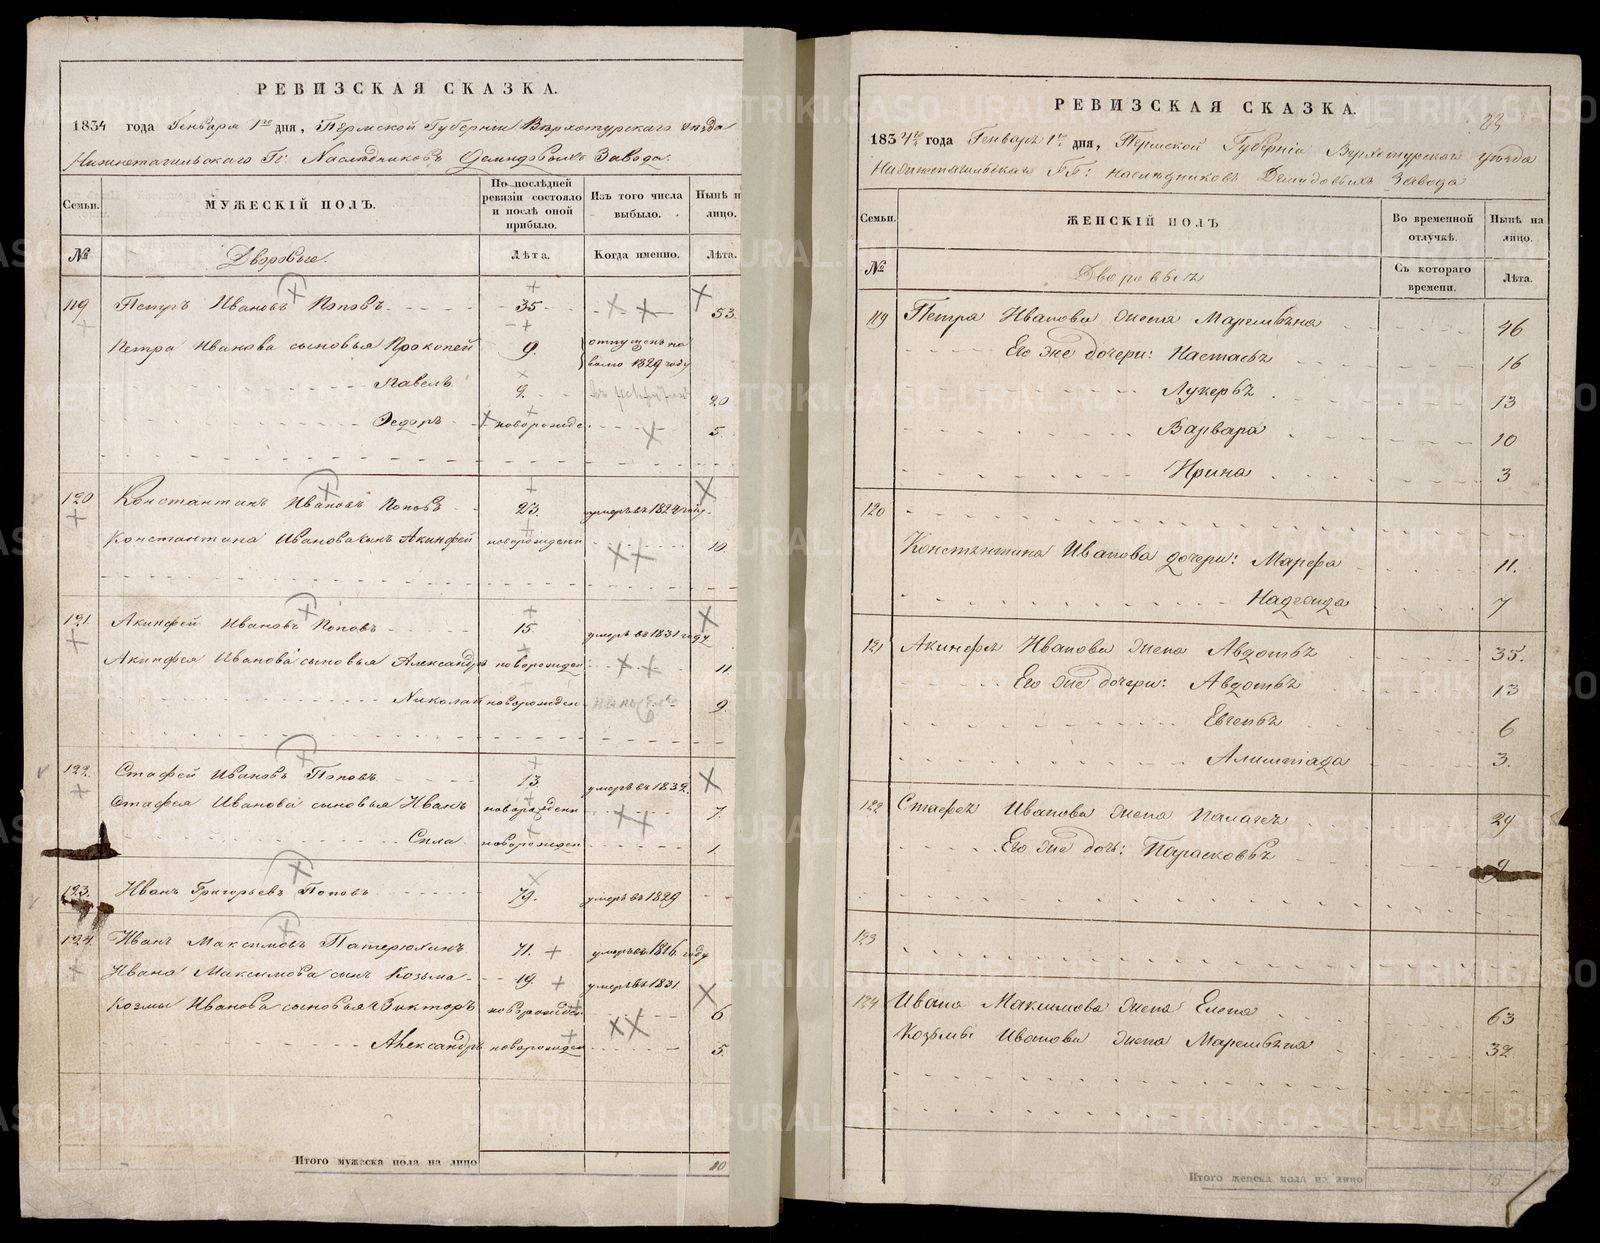 РЕВИЗСКАЯ СКАЗКА.
1834 года Генваря 1го дня, Пермской Губерніи Верхотурскаго уѣзда
Нижнетагильскаго Гг: Наслѣдниковъ Демидовыхъ Завода.
Семьи. МУЖЕСКІЙ ПОЛЪ. По послѣдней ревизіи состояло и послѣ оной прибыло. Изъ того числа выбыло. Нынѣ на лицо.
№ Дворовые. Лѣта. Когда именно. Лѣта.
119 Петръ Ивановъ Поповъ 35 53.
Петра Иванова сыновья Прокопей 9. отпущенъ на волю 1829 году
Павелъ 2. 20
Федоръ новорожде. 5
120 Константинъ Ивановъ Поповъ 23. умеръ въ 1824 году.
Константина Иванова сынъ Акинфей новорожденн 10.
121. Акинфей Ивановъ Поповъ 15. умеръ въ 1831 году
Акинфея Иванова сыновья Александръ новорожден 11.
Николай новорожден 9.
122. Стафей Ивановъ Поповъ 13. умеръ въ 1832.
Стафея Иванова сыновья Иванъ новорожденн 7
Сила новорожден 1.
123. Иванъ Григорьевъ Поповъ 79. умеръ въ 1829
124. Иванъ Максимовъ Патерюхинъ 71. умеръ въ 1816 году
Ивана Максимова сынъ Козьма 19. умеръ въ 1831
Козмы Иванова сыновья Викторъ новорожден 6
Александръ новорожден 5.
Итого мужеска пола на лицо 10
РЕВИЗСКАЯ СКАЗКА.
23
1834го года Генваря 1го дня, Пермской Губерніи Верхотурскаго уѣзда
Нижнетагильскаго ГГ: наслѣдниковъ Демидовыхъ Завода
Семьи. ЖЕНСКІЙ ПОЛЪ Во временной отлучкѣ. Нынѣ на лицо.
№ Дворовыя Съ котораго времени. Лѣта.
119 Петра Иванова жена Маремьяна 46
Его же дочери: Настасья 16
Лукерья 13
Варвара 10
Ирина 3
120
Константина Иванова дочери: Марфа 11.
Надежда 7
121 Акинфея Иванова жена Авдотья 35.
Его же дочери: Авдотья 13
Евгенья 6
Алимпіада 3.
122 Стафея Иванова жена Палагея 29
Его же дочь: Парасковья 2
123
124 Ивана Максимова жена Елена 63
Козьмы Иванова жена Маремьяна 32
Итого женска пола на лицо 15
METRIKI.GASO-URAL.RU